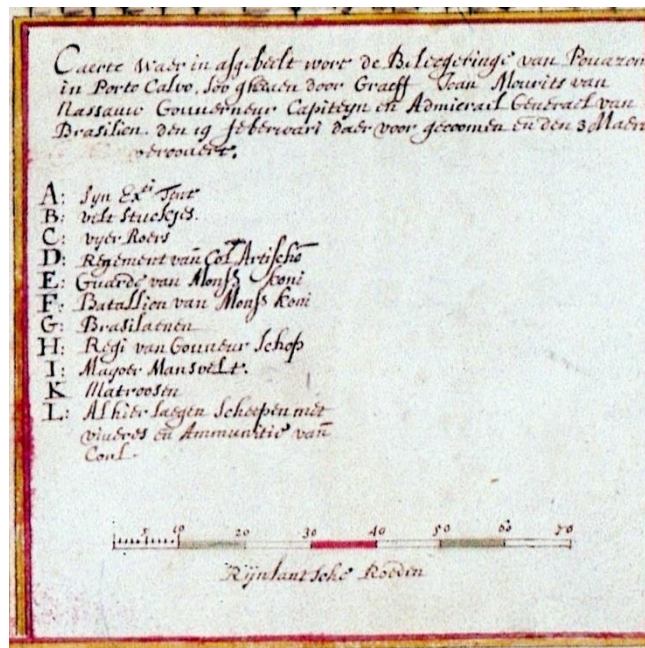 Caerte Waer in afgebeelt wort de Beleegeringe van Pouazon
in Porto Calvo, soo gheuen door Graeff Joan Mourits van
Nassauw Gouuerneur Capiteyn en Admierael Generael van
Brasilien. den 19 feberwari daer voor gecoomen en den 3 Maert
verouert.
A: Syn Ex.ti Tent
B: velt stuckjes.
C: vyer Roers
D: Regement van Col Artischo
E: Guarde van Monss koni
F: Batallion van Monss koni
G: Brasilaenen
H: Regi van Gouueur Schop
I: Mayoer Mansvelt.
K Matroosen
L: Alhier laegen Scheepen met
viueres en Ammunitie van
Conl.
5 10 20 30 40 50 60 70
Rijnlantsche Roeden